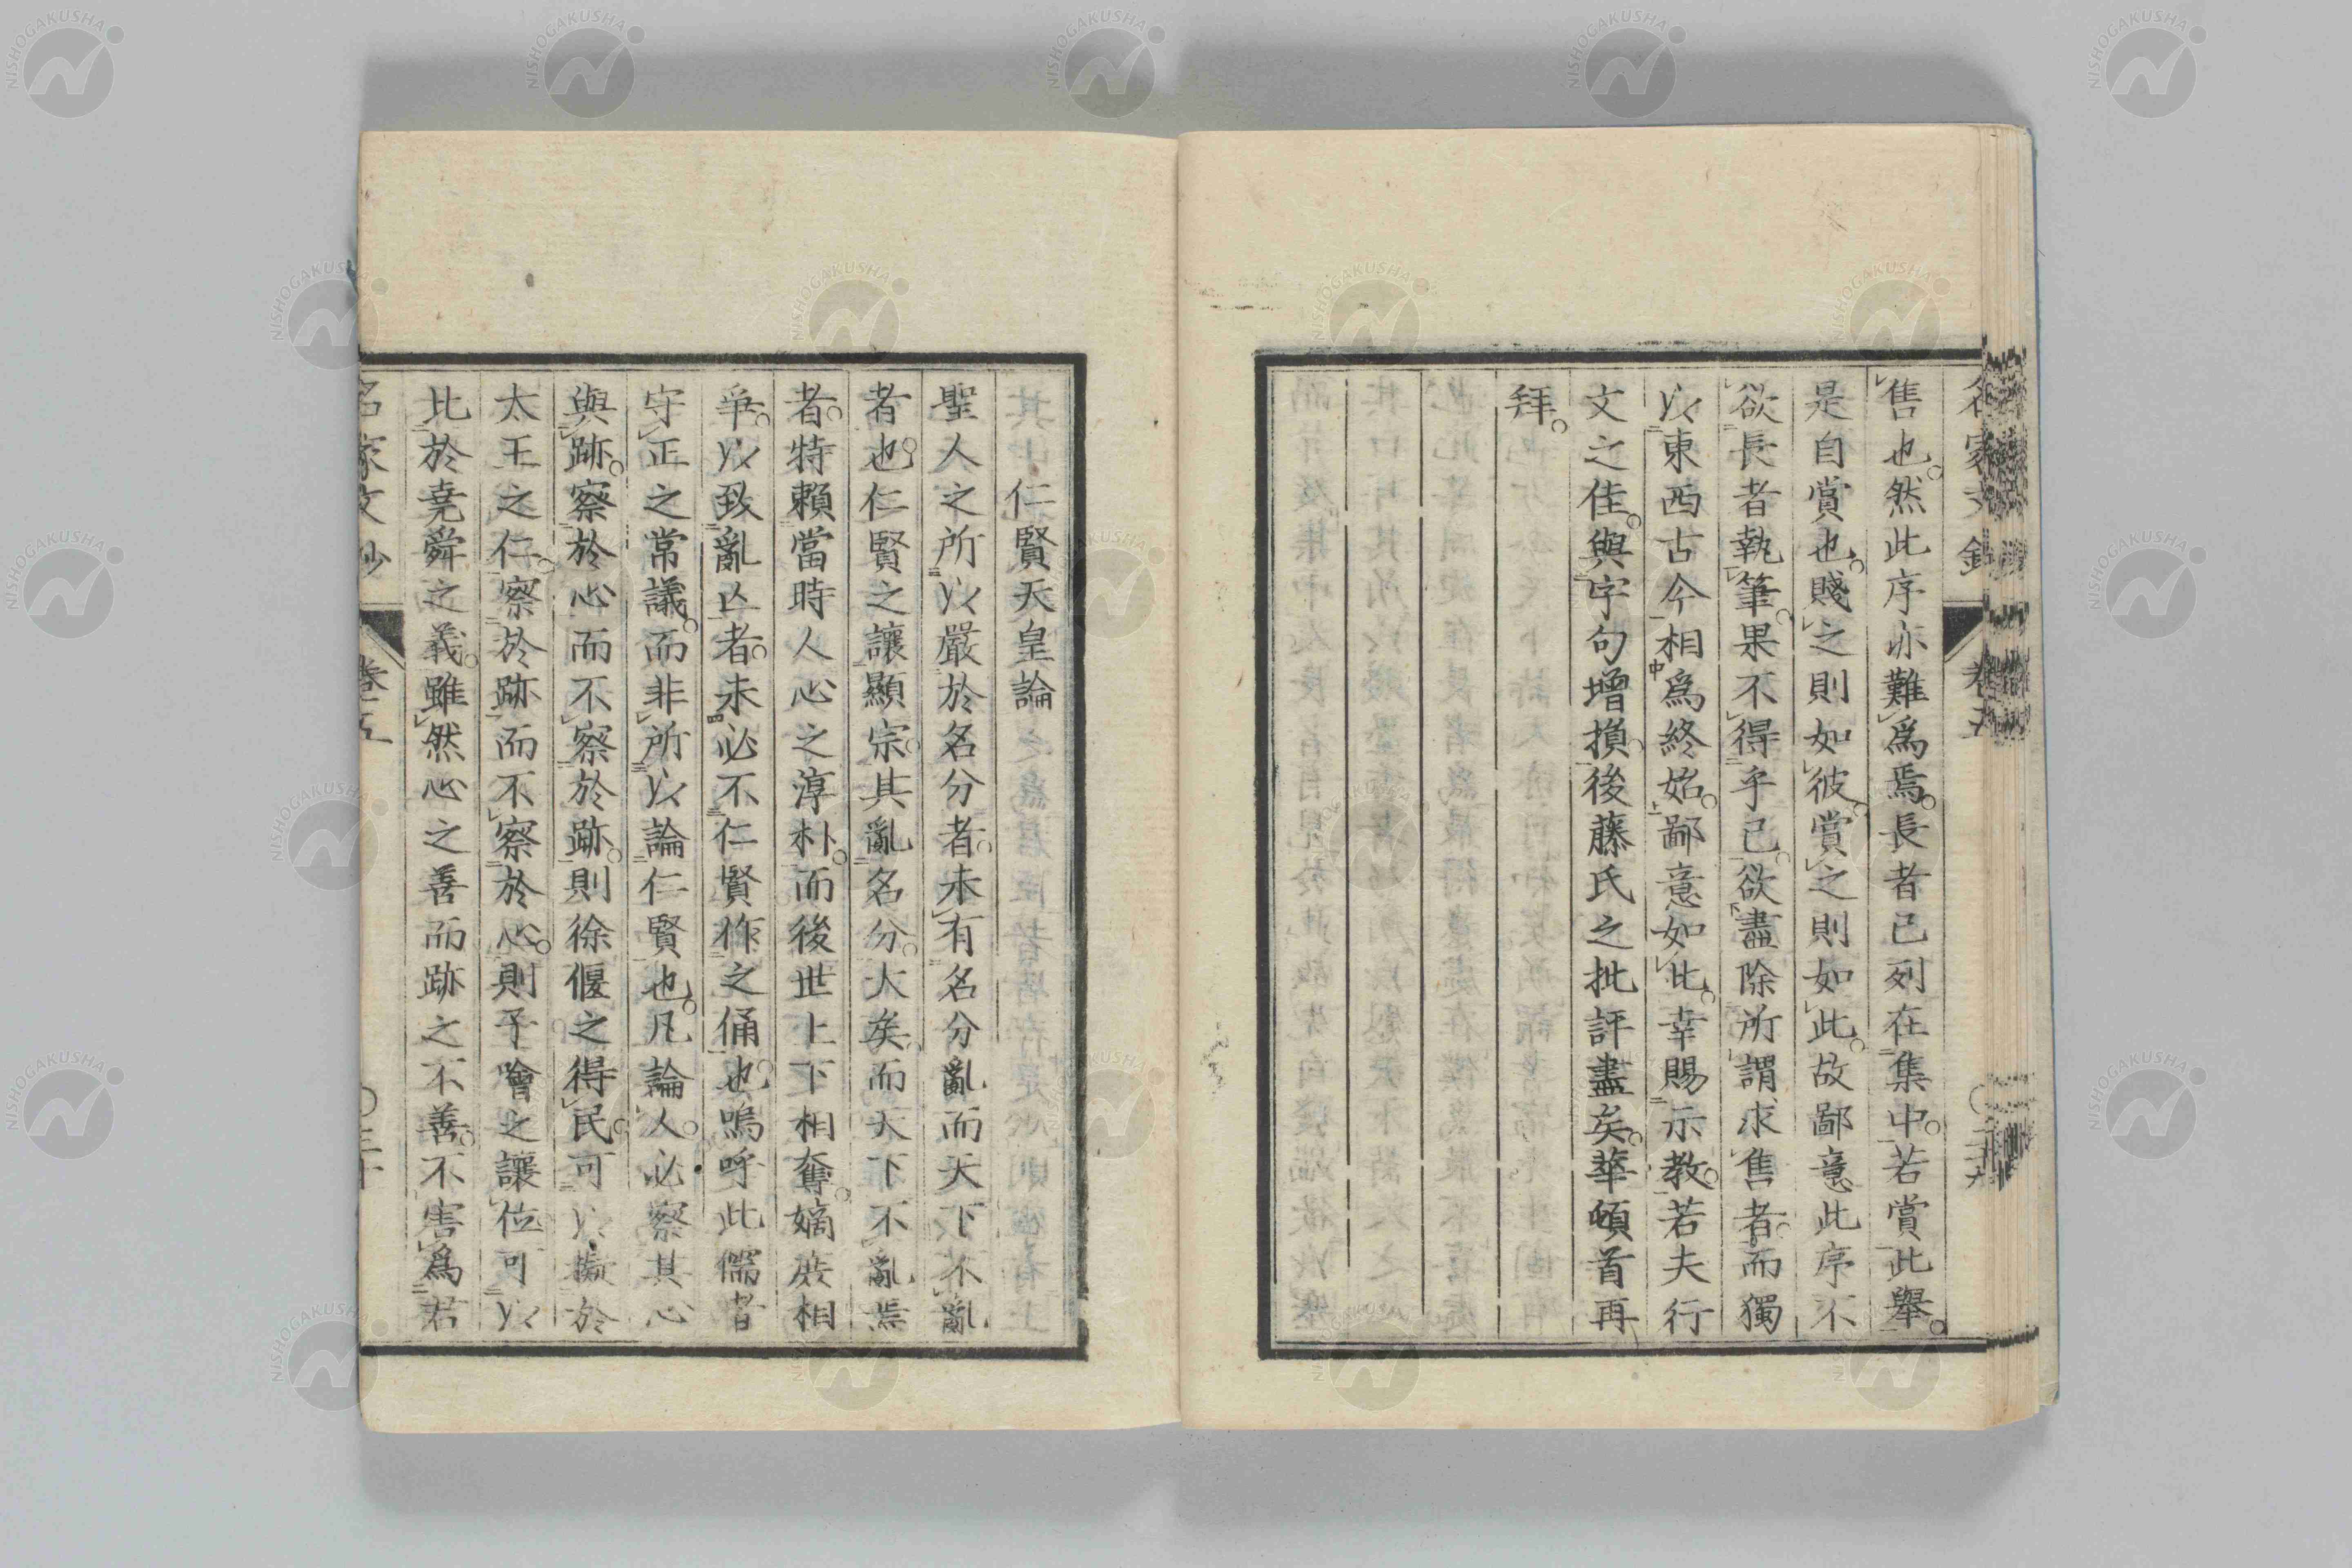 售也然此序亦難爲焉長者已列在集中若賞此舉
是自賞也賤之則如彼賞之則如此故鄙意此序不
欲長者執筆果不得乎已欲盡除所謂求售者而獨
以東西古今相爲終始鄙意如此幸賜示教若夫行
文之佳與字句增損後藤氏之批評盡矣華頓首再
拜
仁賢天皇論
聖人之所以嚴於名分者未有名分亂而天下不亂
者也仁賢之讓顯宗其亂名分大矣而天下不亂焉
者特賴當時人心之淳朴而後世上下相奪嫡庶相
爭以致亂亡者未必不仁賢作之俑也嗚呼此儒者
守正之常議而非所以論仁賢也凡論人必察其心
與跡察於心而不察於跡則徐偃之得民可以擬於
太王之仁察於跡而不察於心則子噲之讓位可以
比於堯舜之義雖然心之善而跡之不善不害爲君
名家文鈔 卷五
NISHOGAKUSHA